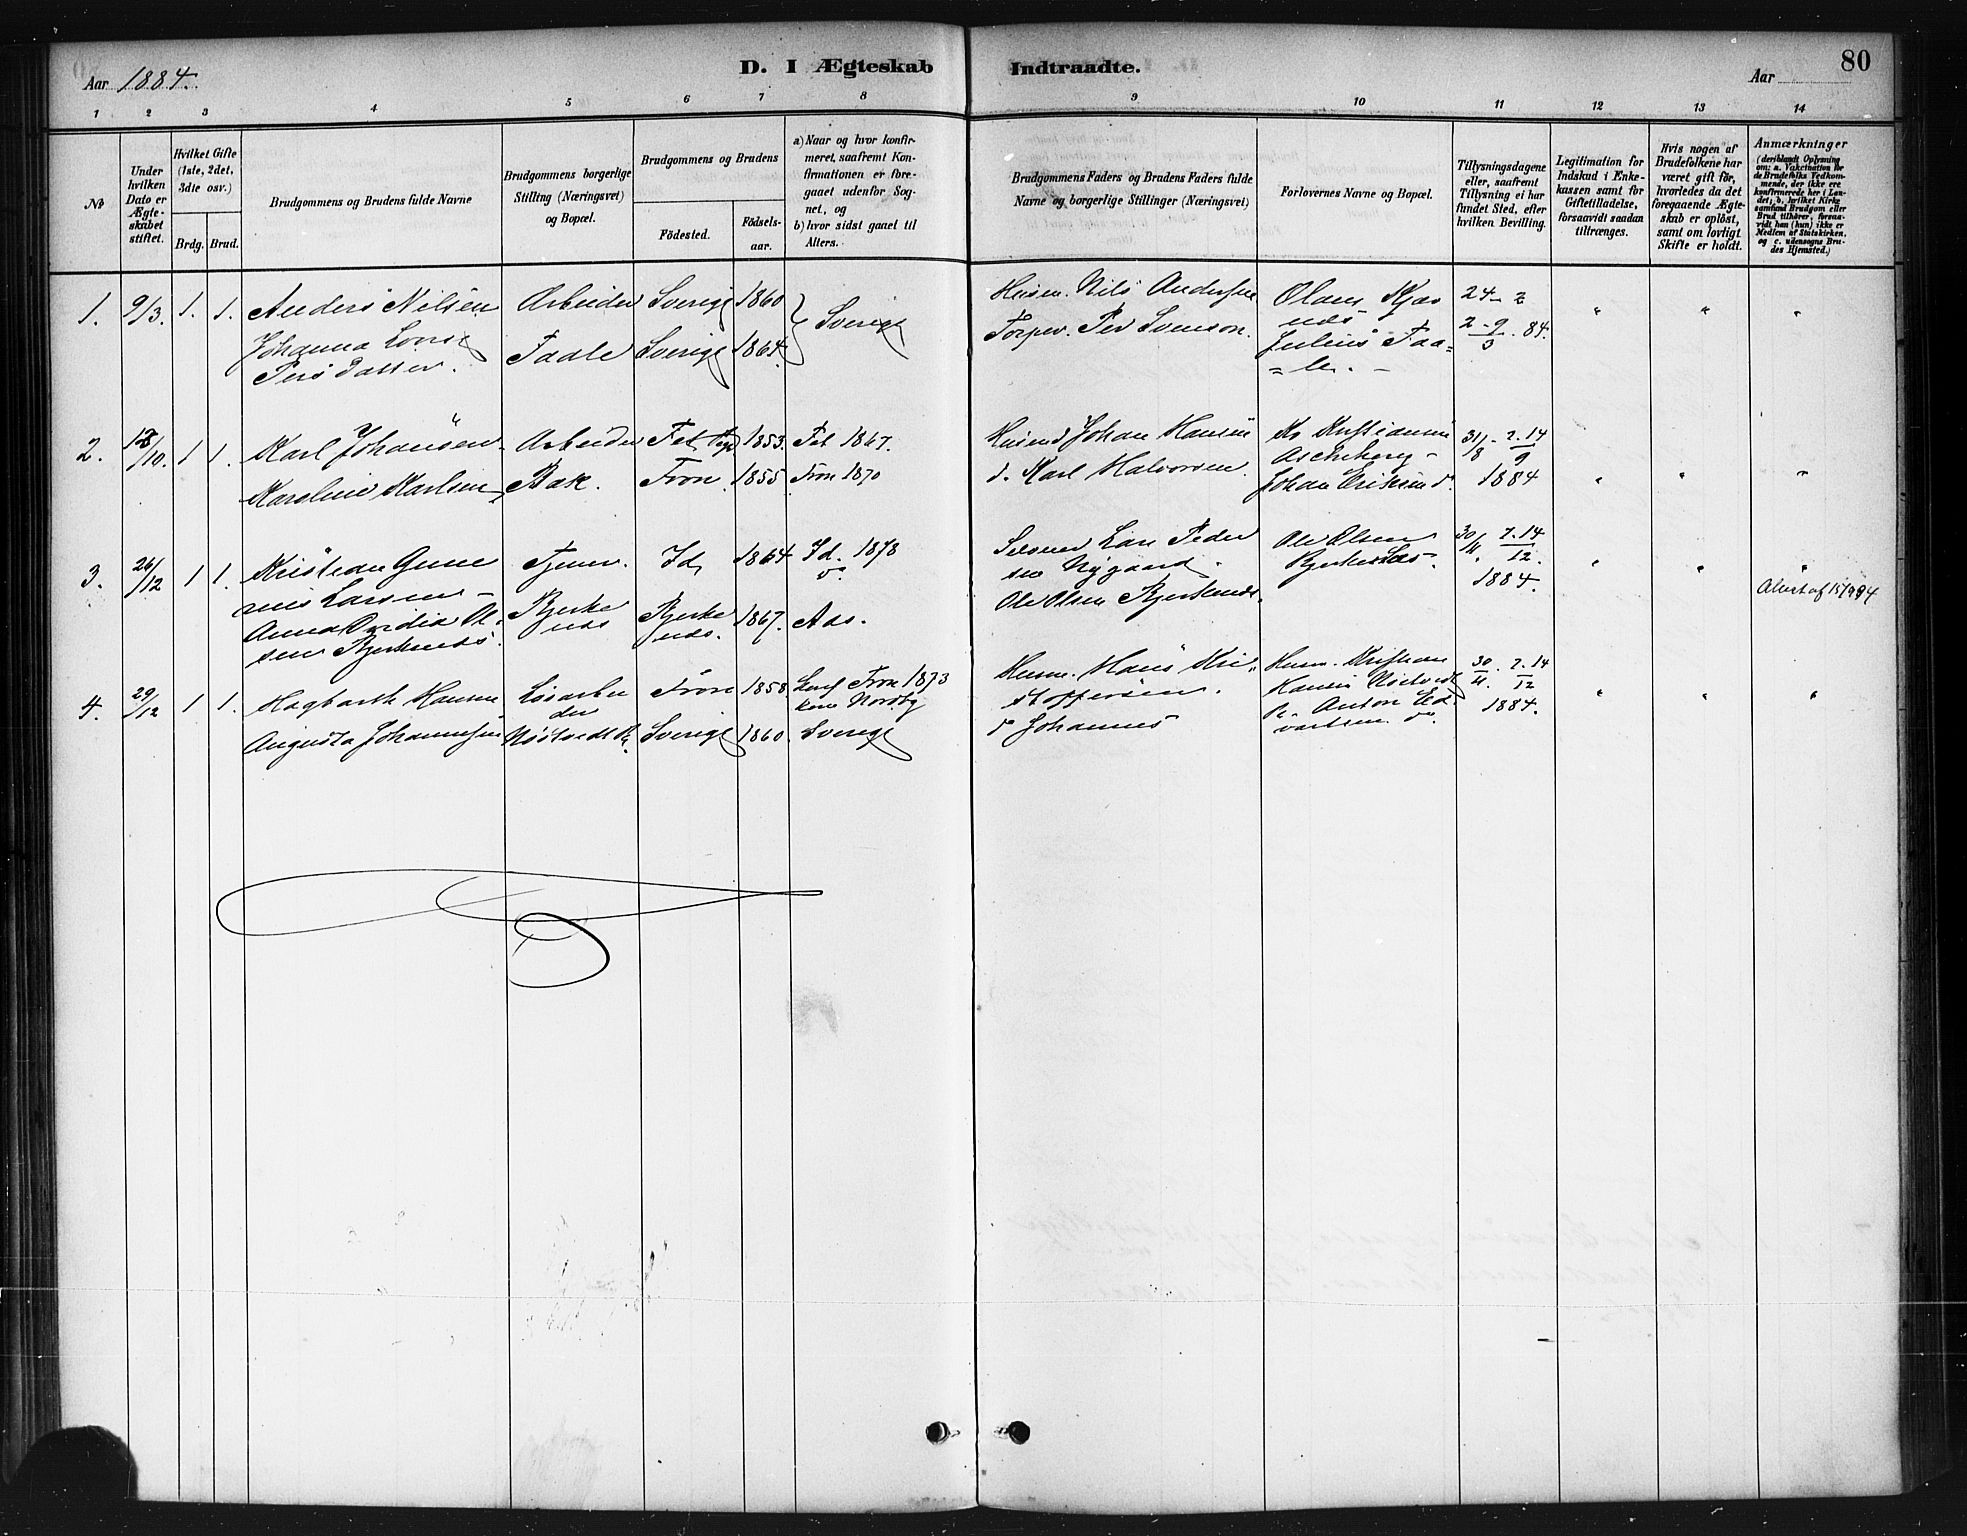 Aar 1884.
D. I Ægteskab
Indtraadte.
Aar
80
1 2 3 4 5 6 7 8
9 10 11 12 13 14
No
Under hvilken Dato er Ægteskabet stiftet.
Hvilket Gifte (1ste, 2det, 3die osv.)
Brdg. Brud.
Brudgommens og Brudens fulde Navne
Brudgommens borgerlige Stilling (Næringsvei) og Bopæl.
Brudgommens og Brudens
Födested.
Födsels-aar.
a) Naar og hvor konfirmeret, saafremt Konfirmationen er foregaaet udenfor Sognet, og
b) hvor sidst gaaet til Alters.
Brudgommens Faders og Brudens Faders fulde Navne og borgerlige Stillinger (Næringsvei)
Forlovernes Navne og Bopæl.
Tillysningsdagene eller, saafremt Tillysning ei har fundet Sted, efter hvilken Bevilling.
Legitimation for Indskud i Enkekassen samt for Giftetilladelse, forsaavidt saadan tiltrænges.
Hvis nogen af Brudefolkene har været gift för, hvorledes da det foregaaende Ægteskab er oplöst, samt om lovligt Skifte er holdt.
Anmærkninger
(deriblandt Oplysning om: a. Vaksination for de Brudefolks Vedkommende, der ikke ere konfirmerede her i Landet; b. hvilket Kirkesamfund Brudgom eller Brud tilhører, forsaavidt han (hun) ikke er Medlem af Statskirken, og c. udensogns Brudes Hjemsted.)
1. 9/3. 1. 1. Anders Nilsen Arbeider Sverige 1860 Sverige
Johanna Lovise Persdatter. Taale Sverige 1864.
Husm. Nils Andersen
Torper. Per Svenson.
Olaus
Julius Taa=
=le.
24-2
2-9/3. 84.
2. 12/10. 1 1. Karl Johansen Arbeider Fet 1853. Fet 1867.
Karoline Karlsen Bak. Tron. 1855 Tron 1870
Husmd Johan Hansen
d. Karl Halvorsen.
Kristianne
Ascheberg
Johan Eriksen do
31/8 - 7.14/9
1884
3. 26/12 1 1. Kristian Gune
rius Larsen Tjener. Id 1864 Id. 1878
Anna Ovidia Ol
sen Bjerkenæs. Bjerke
næs Bjerke
næs. 1867. Ads.
Selveier Lars Peder
sen Nygaard.
Ole Olsen Bjerkenæs.
Ole Olsen
Bjerkenæs.
30/11. 7.14/12.
1884.
4. 29/12 1 1. Hagbarth Hansen Lösarbei
der Tron 1858. Konf Tron 1873
Nordby
Augusta Johannesen Nöstvedt Sverige 1860. Sverige
Husm. Hans Kri
stoffersen.
d Johannes
Husm. Kristian
Hansen Nöstvedt
Anton Ed
vartsen do.
30/11. 7.14/12
1884.